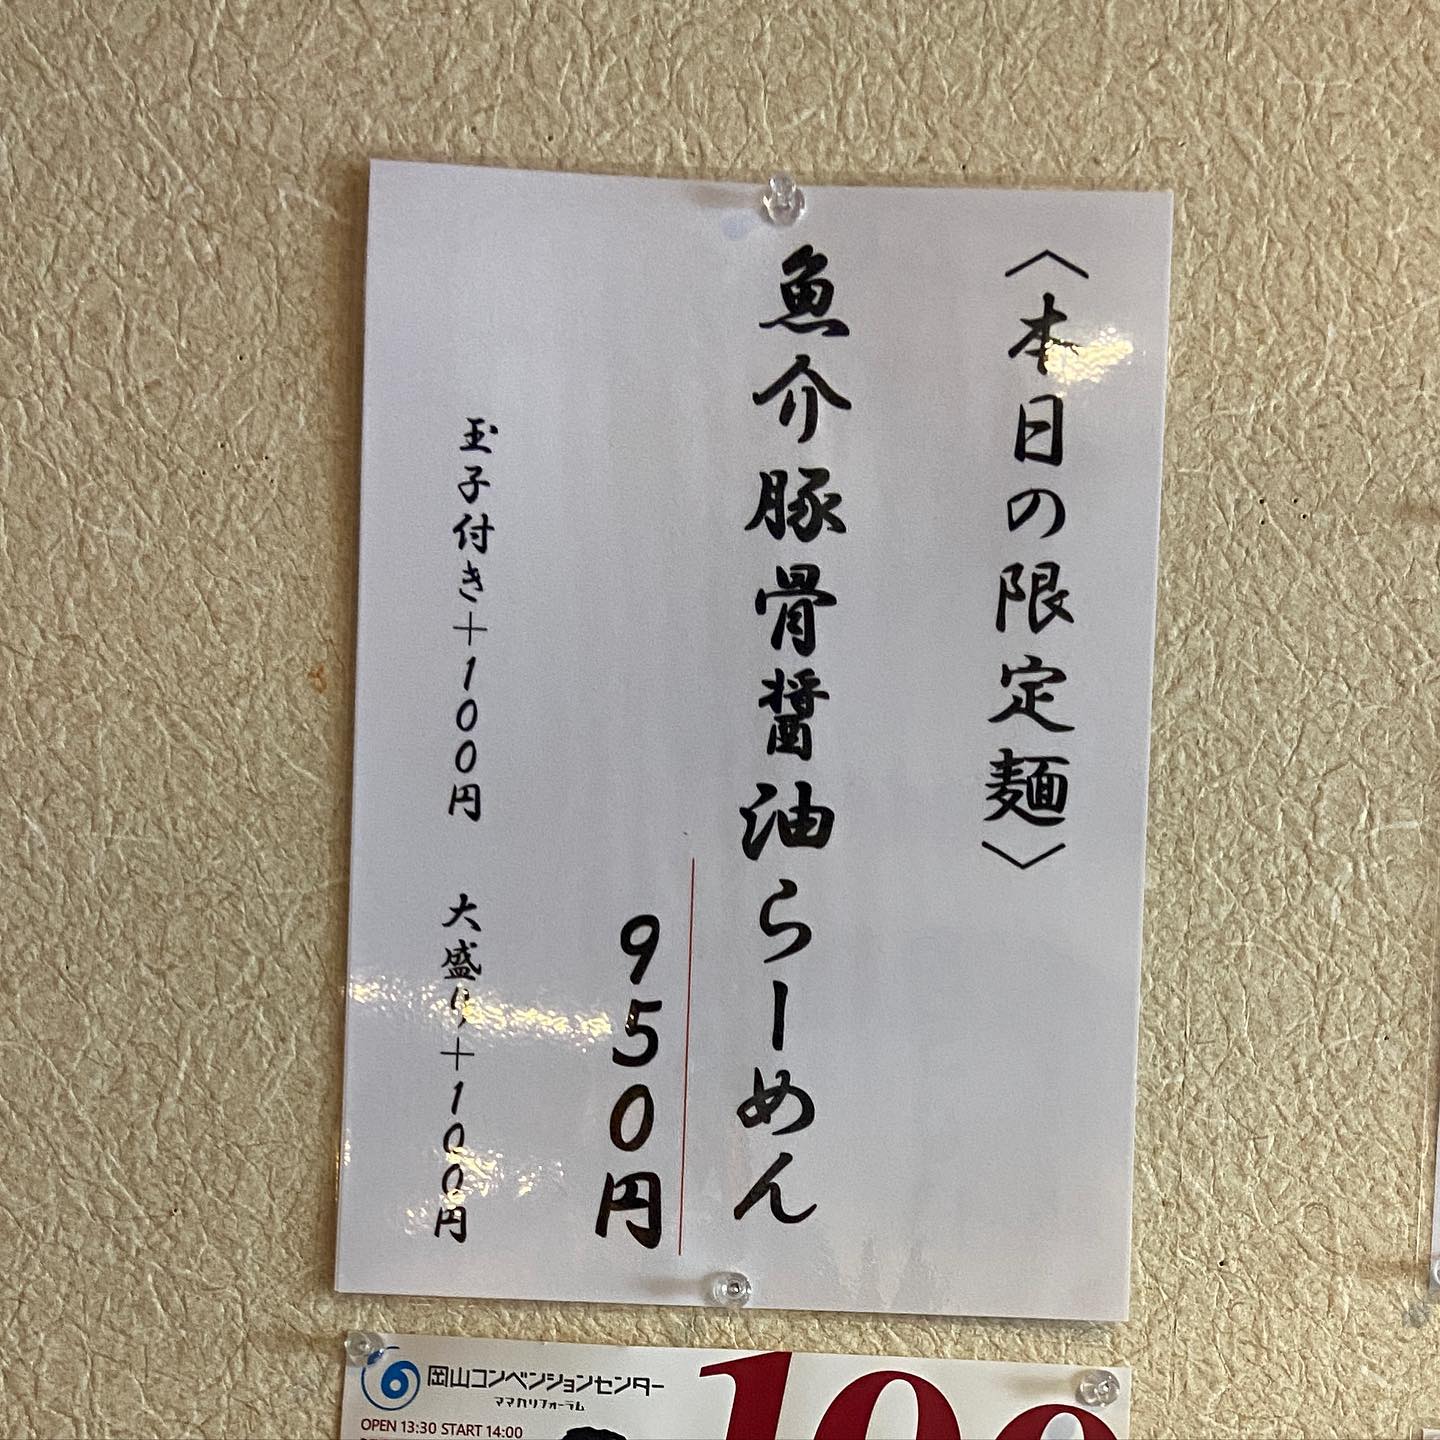 〈本日の限定麺〉
魚介豚骨醤油らーめん
950円
玉子付き+100円 大盛り+100円
岡山コンベンションセンター
ママカリフォーラム
OPEN 13:30 START 14:00